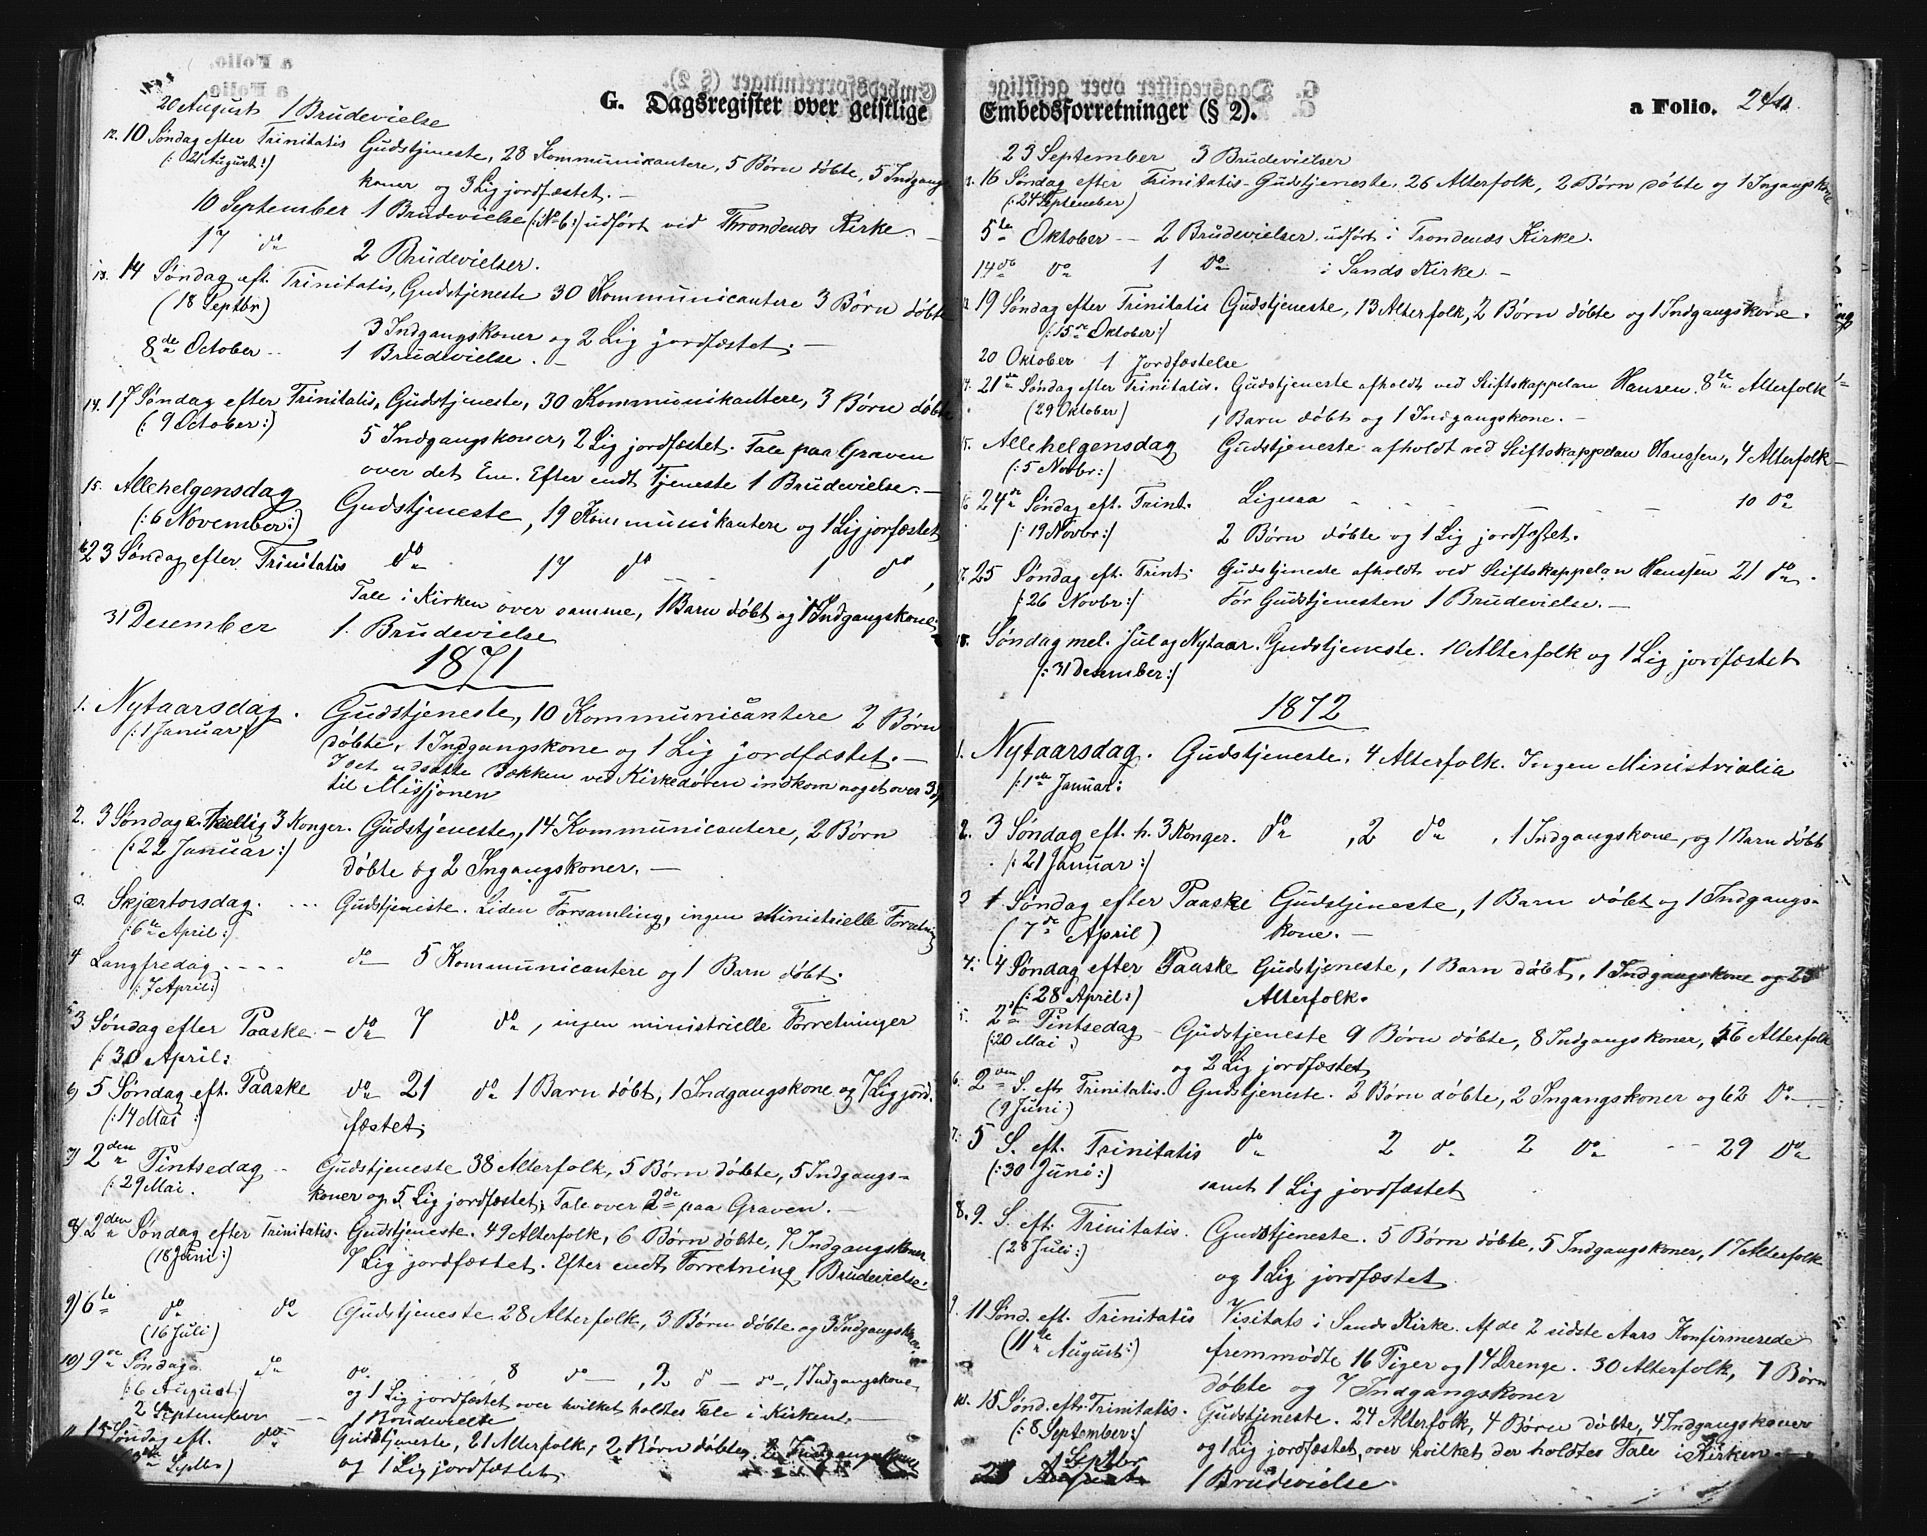 G. Dagsregister over geistlige
20 August 1 Brudevielse
12. 10 Søndag efter Trinitatis Gudstjeneste, 28 Kommunikantere, 5 Børn døbte, 5 Indgangs
(: 21 August :) koner og 3 Lig jordfæstet. —
10 September 1 Brudevielse (: No 6 :) udført ved Throndenæs Kirke. —
17 do 2 Brudevielser.
13. 14 Søndag eft. Trinitatis, Gudstjeneste 30 Kommunicantere 3 Børn døbte
(18 Septbr) 3 Indgangskoner og 2 Lig jordfæstet. —
8de October .. 1 Brudevielse. —
14. 17 Søndag efter Trinitatis, Gudstjeneste, 30 Kommunikantere, 3 Børn døbte
(: 9 October :) 5 Indgangskoner, 2 Lig jordfæstet. Tale paa Graven
over det Ene. Efter endt Tjeneste 1 Brudevielse. —
15. Allehelgensdag Gudstjeneste, 19 Kommunikantere og 1 Lig jorfæstet
(: 6 November :)
23 Søndag efter Trinitatis do 17 do 1 do,
Tale i Kirken over samme, 1 Barn døbt og 1 Indgangskone.
31 Desember 1. Brudevielse
1871
1. Nytaarsdag. Gudstjeneste, 10 Kommunicantere 2 Børn
(: 1 Januar) døbte, 1 Indgangskone og 1 Lig jordfæstet. —
I det udsatte Bækken ved Kirkedøren indkom noget over 3
til Missjonen
2. 3 Søndag e. Hellig 3 Konger. Gudstjeneste, 14 Kommunicantere, 2 Børn
(: 22 Januar :) døbte og 2 Ingangskoner. —
3. Skjærtorsdag. ... Gudstjeneste. Liden Forsamling, ingen Ministrielle Forretning
(: 6te April :)
4 Langfredag. . . . . do 5 Kommunicantere og 1 Barn døbt.
(: 7 April :)
5. 3 Søndag efter Paaske. — do 7 do, ingen ministrielle Forretninger
(: 30 April :
6) 5 Søndag eft. Paaske do 21 do 1 Barn døbt, 1 Indgangskone og 7 Lig jord.
(: 14 Mai :) fæstet.
7) 2den Pintsedag .. Gudstjeneste 38 Alterfolk, 5 Børn døbte, 5 Indgangs-
(: 29 Mai. koner og 5 Lig jordfæstet; Tale over 2de paa Graven. —
8) 2den Søndag efter Trinitatis. Gudstjeneste. 49 Alterfolk, 6 Børn døbte, 7 Indgangskoner
(18 Juni :) 7 Lig jordfæstet. Efter endt Forretning 1 Brudevielse.
9) 6te do do Gudstjeneste. 28 Alterfolk, 3 Børn døbte og 3 Indgangskoner
(16 Juli)
10) 9de Søndag do do 8 do —, 2 d — do —, 1 Indgangskone
(: 6 August :) og 1 Lig jordfæstet over hvilket holdtes Tale i Kirken.
2 September — 1 Brudevielse
11 15 Søndag eft. do Gudstjeneste, 21 Alterfolk, 2 Børn døbte, 2 Indgangskoner
Septbr) og 1 Lig jordfæstet.
Embedsforretninger (§ 2). a Folio. 240.
23 September 3 Brudevielser
16 Søndag efter Trinitatis Gudstjeneste, 26 Alterfolk, 2 Børn døbte og 1 Ingangskone
(: 24 September)
5te Oktober — 2 Brudevielser udført i Trondenæs Kirke.
14de do 1 do i Sands Kirke. —
19 Søndag efter Trinitatis Gudstjeneste, 13 Alterfolk, 2 Børn døbte og 1 Indgangskone.
(: 15de Oktober :)
20 Oktober 1 Jordfæstelse
14. 21de Søndag efter Trinitatis. Gudstjeneste afholdt ved Stiftskappelan Hansen. 8te Alterfolk
(29 Oktober) 1 Barn døbt og 1 Indgangskone. —
15. Allehelgensdag Gudstjeneste afholdt ved Stiftskappelan Hanssen, 4 Alterfolk
(: 5 Novbr :)
16 24de Søndag eft. Trint. Ligesaa 10 do
(: 19 Novbr :) 2 Børn døbte og 1 Lig jordfæstet.
17. 25 Søndag eft. Trint. Gudstjeneste afholdt ved Stiftskappelan Hanssen 21 do.
(: 26 Novbr :) Før Gudstjenesten 1 Brudevielse. —
18. Søndag mel. Jul og Nytaar. Gudstjeneste. 10 Alterfolk og 1 Lig jordfæstet
(: 31 Desember :)
1872
1. Nytaarsdag. Gudstjeneste. 4 Alterfolk. Ingen Ministrialia
(: 1ste Januar :
2. 3 Søndag eft. h. 3 Konger. do , 2 do , 1 Indgangskone, og 1 Barn døbt
(: 21 Januar :)
3 1 Søndag efter Paaske Gudstjeneste, 1 Barn døbt og 1 Indgangs-
(7de April) kone. —
4. 4 Søndag efter Paaske Gudstjeneste, 1 Barn døbt, 1 Indgangskone og 25
(: 28 April :) Alterfolk.
5. 2den Pintsedag — Gudstjeneste 9 Børn døbte, 8 Indgangskoner, 56 Alterfolk
(: 20 Mai :) og 2 Lig jordfæstet
6. 2den S. eft. Trinitatis. Gudstjeneste. 2 Børn døbte, 2 Ingangskoner og 62 do —
(9 Juni)
7. 5 S. eft. Trinitatis do 2 do 2 do — 29 do
(: 30 Juni :) samt 1 Lig jordfæstet
8. 9. S. eft. Trinitatis. Gudstjeneste. 5 Børn døbte, 5 Indgangskoner, 17 Alterfolk
(28 Juli :) og 1 Lig jordfæstet
9. 11 Sønd. eft. Trinitatis Visitats i Sands Kirke. Af de 2 sidste Aars Konfirmerede
(11te August :) fremmødte 16 Piger og 14 Drenge. 30 Alterfolk, 7 Børn
døbte og 7 Indgangskoner
10. 15 Sønd. eft. Trinitatis. Gudstjeneste. 24 Alterfolk, 4 Børn døbte, 4 Indgangskoner
(: 8 September :) og 1 Lig jordfæstet, over hvilket der holdtes Tale i Kirken
Septbr
1 Brudevielse.